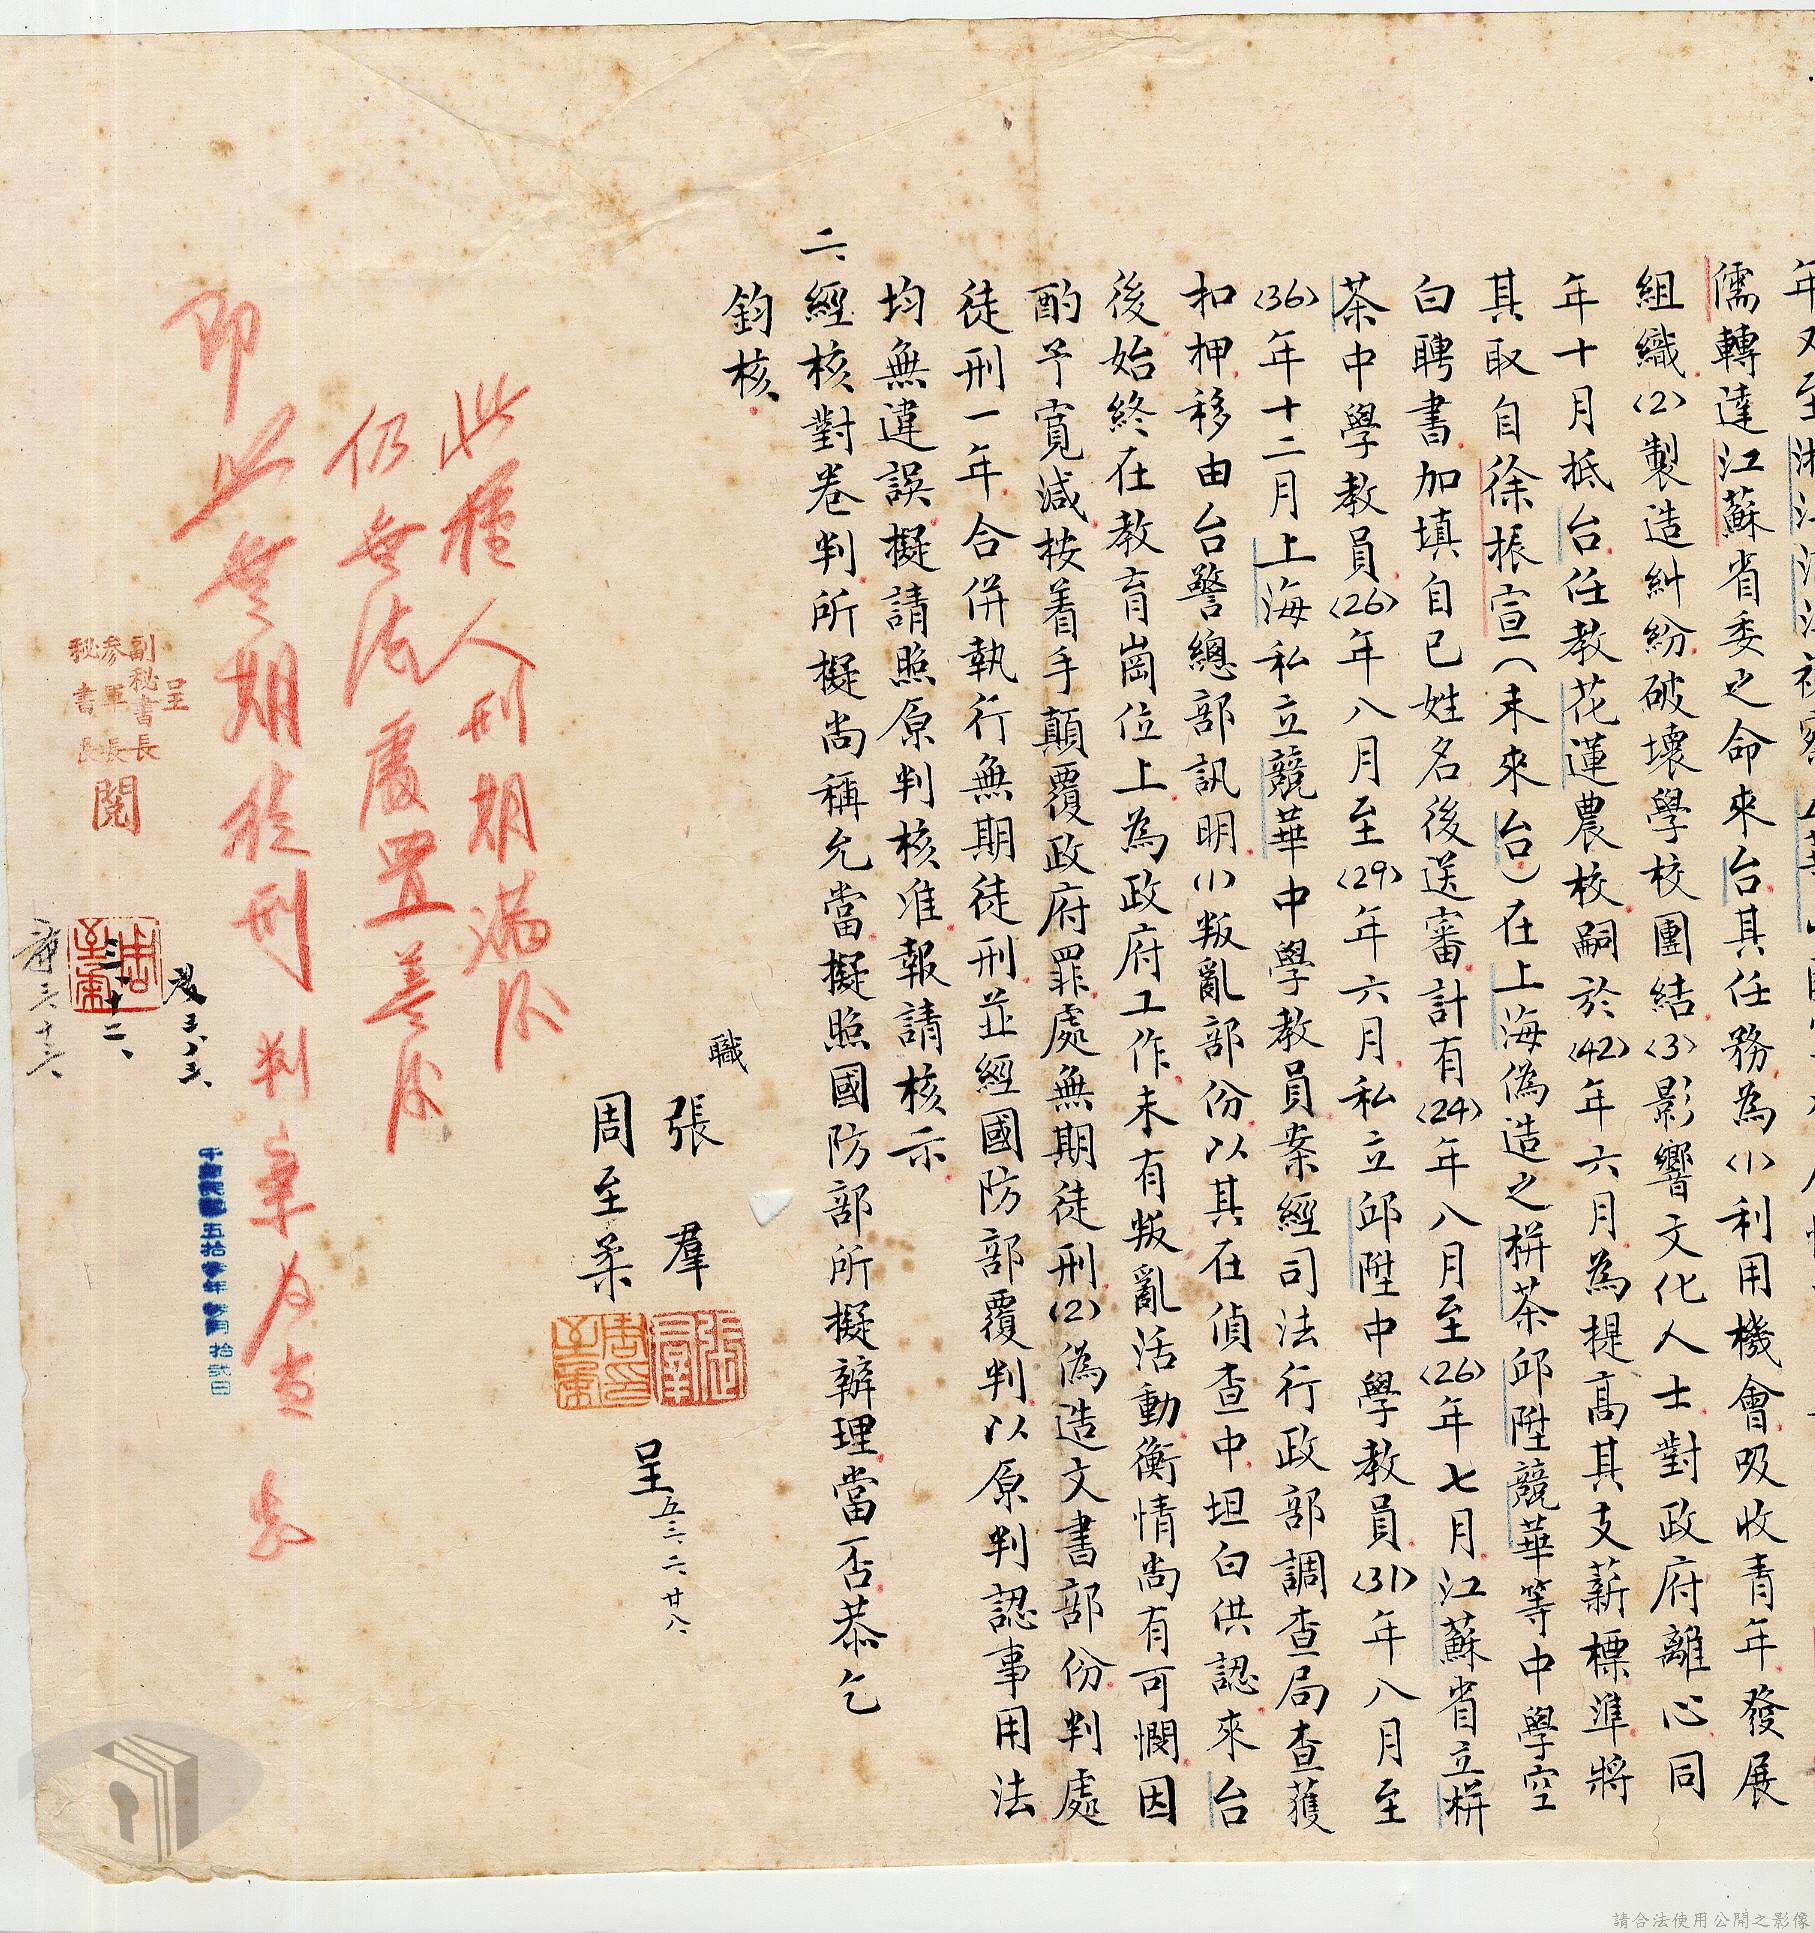 儒轉達江蘇省委之命來台其任務為(1)利用機會吸收青年發展
組織(2)製造糾紛破壞學校團結(3)影響文化人士對政府離心同
年十月抵台任教花蓮農校嗣於(42)年六月為提高其支薪標準將
其取自徐振宣(未來台)在上海偽造之栟茶邱陞競華等中學空
白聘書加填自已姓名後送審計有(24)年八月至(26)年七月江蘇省立栟
茶中學教員(26)年八月至(29)年六月私立邱陞中學教員(31)年八月至
(36)年十二月上海私立競華中學教員案經司法行政部調查局查獲
扣押移由台警總部訊明(1)叛亂部份以其在偵查中坦白供認來台
後始終在教育崗位上為政府工作未有叛亂活動衡情尚有可憫因
酌予寬減按着手顛覆政府罪處無期徒刑(2)偽造文書部份判處
徒刑一年合併執行無期徒刑並經國防部覆判以原判認事用法
均無違誤擬請照原判核准報請核示
二、經核對卷判所擬尚稱允當擬照國防部所擬辦理當否恭乞
鈞核
職
張羣
周至柔
呈
五三、二、廿八
此種人刑期滿後
仍無法處置善後
即以無期徒刑判案為宜
呈
副秘書長
參軍長
秘書長
閱
三、十二、